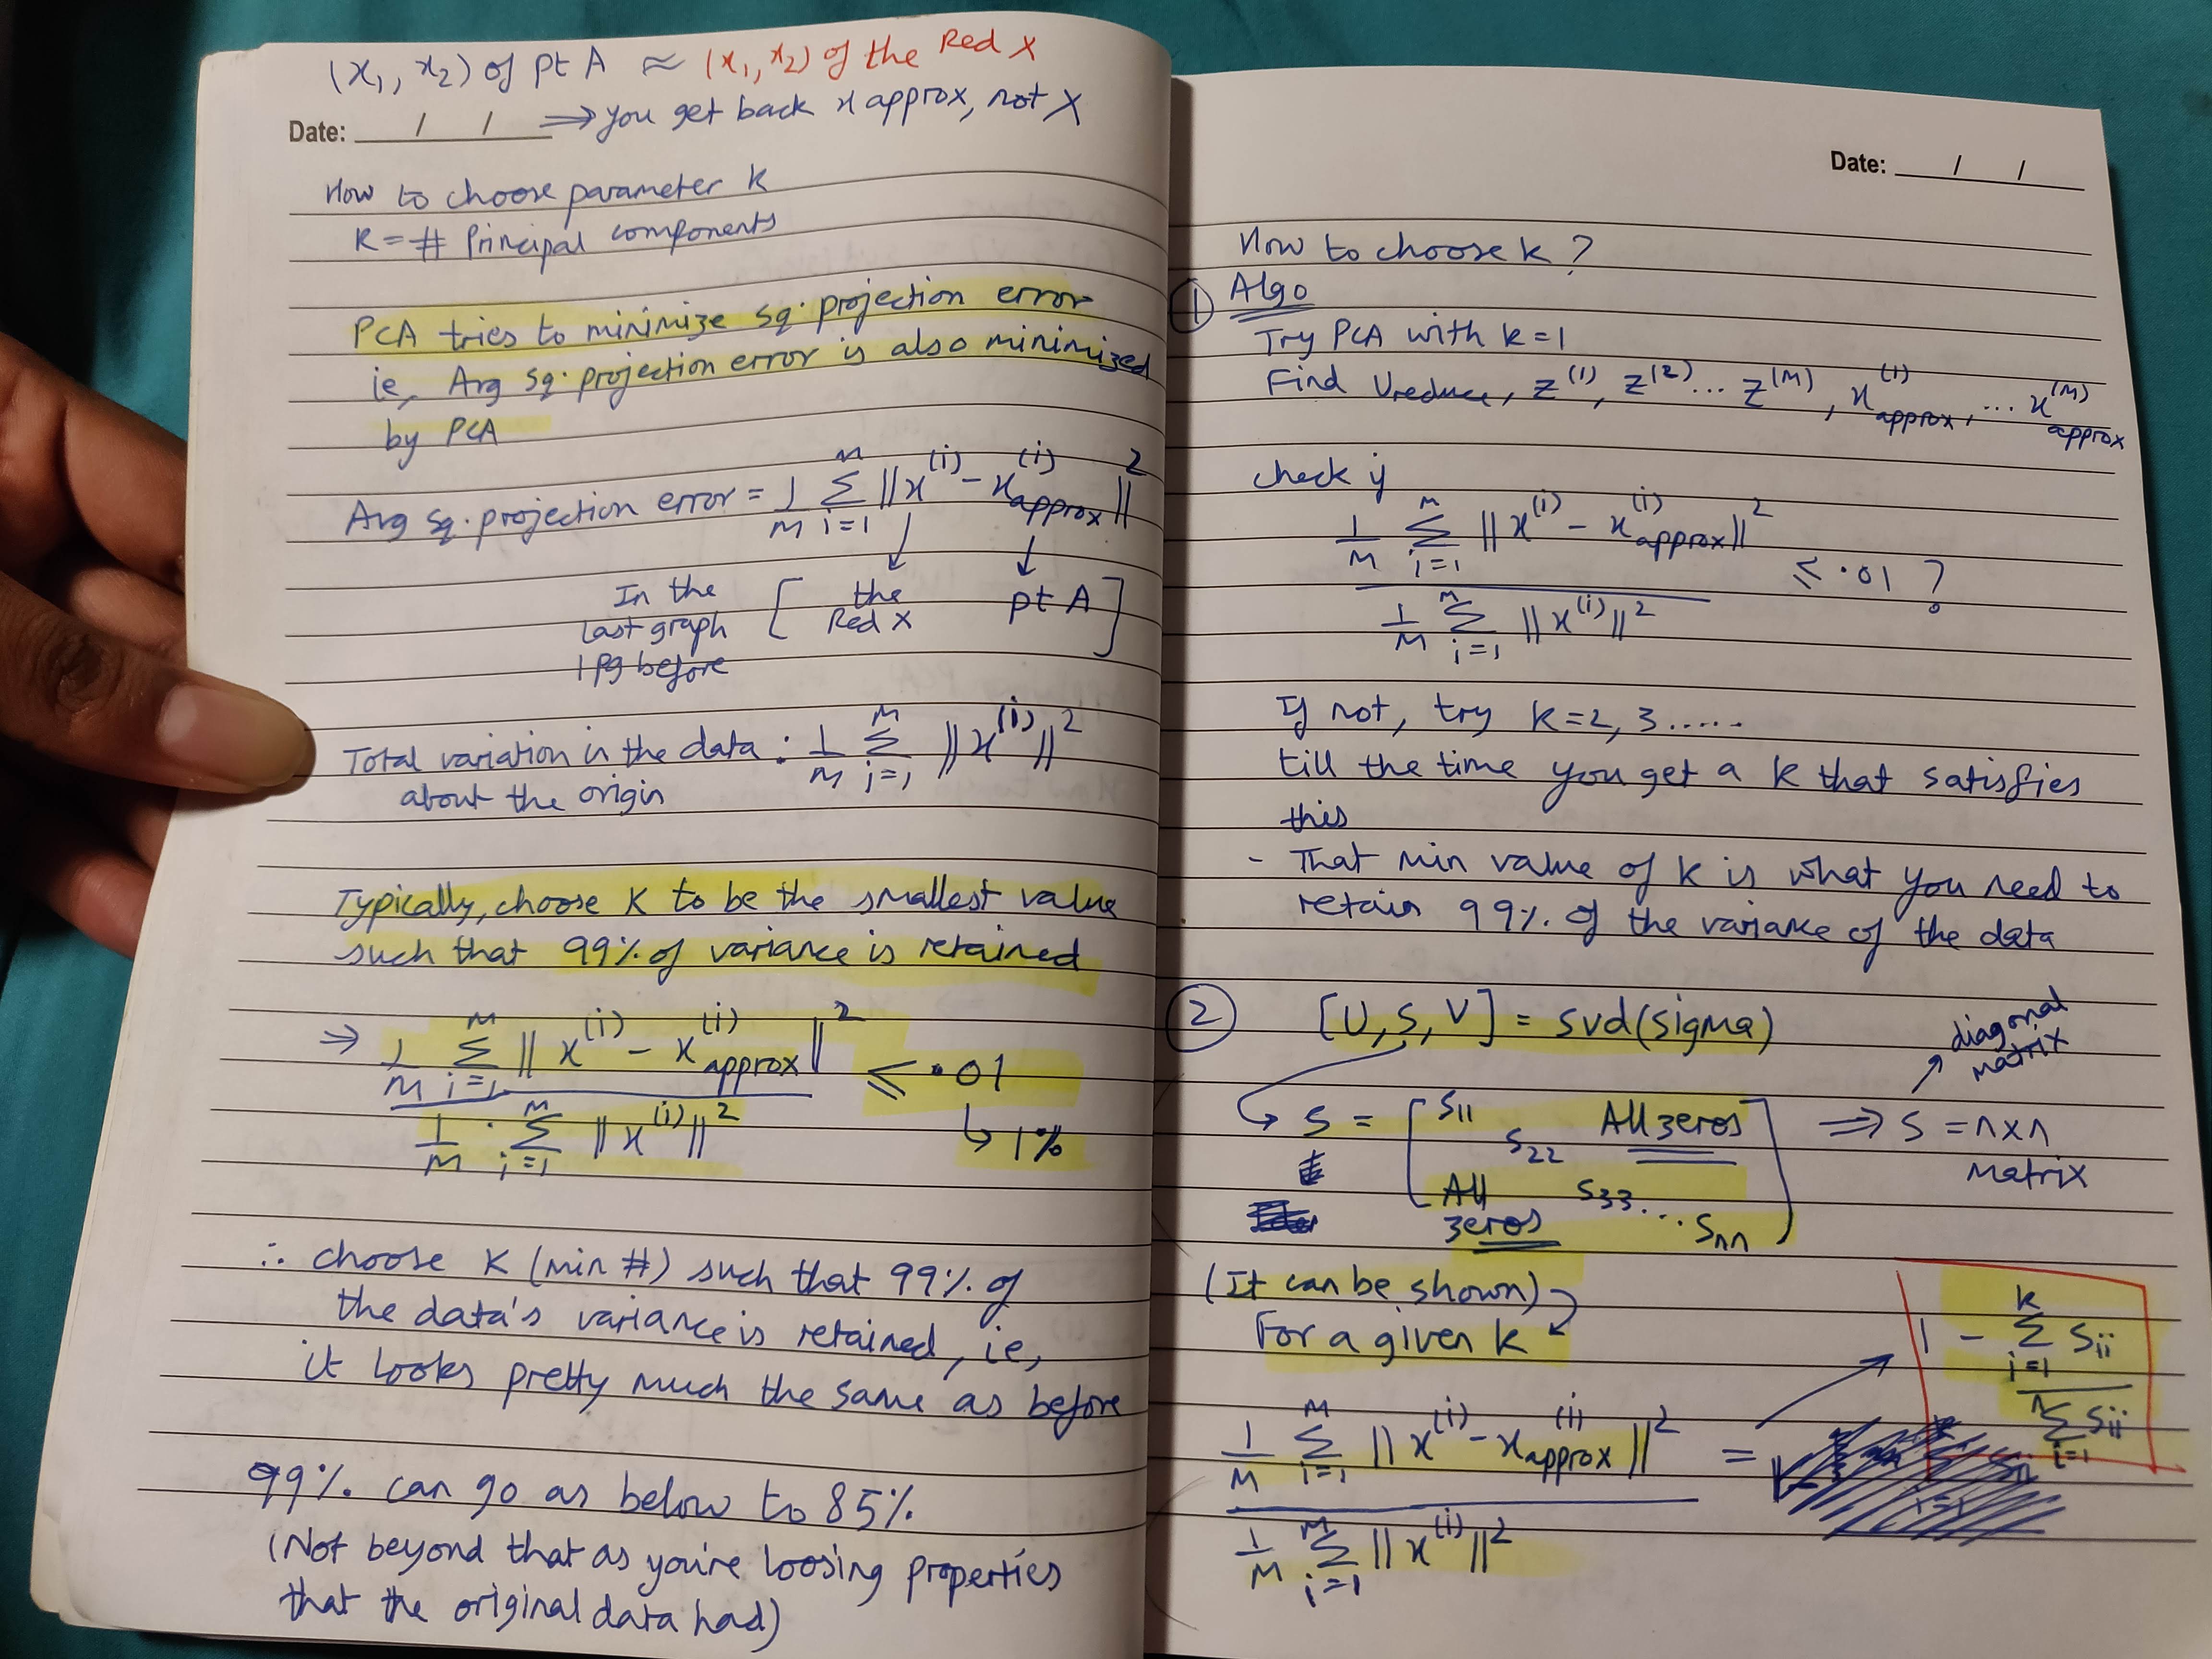 (x₁, x₂) of pt A ≈ (x₁, x₂) of the Red X
Date: / / ⇒ you get back x approx, not X
How to choose parameter K
K = # Principal components
PCA tries to minimize sq. projection error
ie, Avg sq. projection error is also minimized
by PCA
Avg sq. projection error = 1/M Σ_{i=1}^{M} ||x^(i) - x^(i)_approx||²
In the last graph 1 pg before [ the Red X   pt A ]
Total variation in the data : 1/M Σ_{i=1}^{M} ||x^(i)||²
about the origin
Typically, choose K to be the smallest value
such that 99% of variance is retained
⇒ 1/M Σ_{i=1}^{M} ||x^(i) - x^(i)_approx||²
≤ .01
↳ 1%
1/M Σ_{i=1}^{M} ||x^(i)||²
∴ choose K (min #) such that 99% of
the data's variance is retained, ie,
it looks pretty much the same as before
99% can go as below to 85%
(Not beyond that as you're loosing properties
that the original data had)
Date: / /
How to choose k?
① Algo
Try PCA with k=1
Find Ureduce, z^(1), z^(2)... z^(M), x^(1)_approx, ... x^(M)_approx
check if
1/M Σ_{i=1}^{M} ||x^(i) - x^(i)_approx||²
≤ .01 ?
1/M Σ_{i=1}^{M} ||x^(i)||²
If not, try K=2, 3.....
till the time you get a K that satisfies
this
- That min value of K is what you need to
retain 99% of the variance of the data
② [U, S, V] = svd(sigma)
diagonal
matrix
↳ S = [ S11 S22 S33... Snn All zeros All zeros ] ⇒ S = n×n
Matrix
(It can be shown)
For a given k
1 - Σ_{i=1}^{K} Sii
Σ_{i=1}^{n} Sii
1/M Σ_{i=1}^{M} ||x^(i) - x^(i)_approx||² =
1/M Σ_{i=1}^{M} ||x^(i)||²